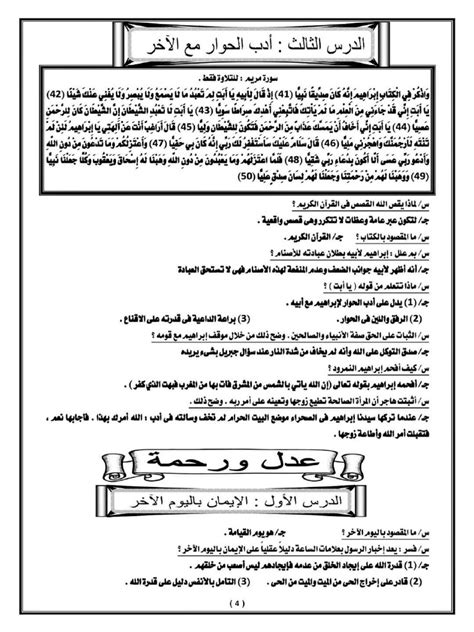 الدرس الثالث : أدب الحوار مع الآخر
سورة مريم : للتلاوة فقط .
وَاذْكُرْ فِي الْكِتَابِ إِبْرَاهِيمَ إِنَّهُ كَانَ صِدِّيقًا نَّبِيًّا (41) إِذْ قَالَ لِأَبِيهِ يَا أَبَتِ لِمَ تَعْبُدُ مَا لَا يَسْمَعُ وَلَا يُبْصِرُ وَلَا يُغْنِي عَنكَ شَيْئًا (42)
يَا أَبَتِ إِنِّي قَدْ جَاءَنِي مِنَ الْعِلْمِ مَا لَمْ يَأْتِكَ فَاتَّبِعْنِي أَهْدِكَ صِرَاطًا سَوِيًّا (43) يَا أَبَتِ لَا تَعْبُدِ الشَّيْطَانَ إِنَّ الشَّيْطَانَ كَانَ لِلرَّحْمَنِ
عَصِيًّا (44) يَا أَبَتِ إِنِّي أَخَافُ أَن يَمَسَّكَ عَذَابٌ مِّنَ الرَّحْمَن فَتَكُونَ لِلشَّيْطَانِ وَلِيًّا (45) قَالَ أَرَاغِبٌ أَنتَ عَنْ آلِهَتِي يَا إِبْرَاهِيمُ لَئِن لَّمْ
تَنتَهِ لَأَرْجُمَنَّكَ وَاهْجُرْنِي مَلِيًّا (46) قَالَ سَلَامٌ عَلَيْكَ سَأَسْتَغْفِرُ لَكَ رَبِّي إِنَّهُ كَانَ بِي حَفِيًّا (47) وَأَعْتَزِلُكُمْ وَمَا تَدْعُونَ مِن دُونِ اللَّهِ
وَأَدْعُو رَبِّي عَسَى أَلَّا أَكُونَ بِدُعَاءِ رَبِّي شَقِيًّا (48) فَلَمَّا اعْتَزَلَهُمْ وَمَا يَعْبُدُونَ مِن دُونِ اللَّهِ وَهَبْنَا لَهُ إِسْحَاقَ وَيَعْقُوبَ وَكُلًّا جَعَلْنَا نَبِيًّا
(49) وَوَهَبْنَا لَهُم مِّن رَّحْمَتِنَا وَجَعَلْنَا لَهُمْ لِسَانَ صِدْقٍ عَلِيًّا (50)
س/ لماذا يقص الله القصص فى القرآن الكريم ؟
جـ/ لتكون عبر عامة وعظات لا تتكرر وهى قصص واقعية .
س/ ما المقصود بالكتاب ؟ جـ/ القرآن الكريم .
س/ بم علل : إبراهيم لأبيه بطلان عبادته للأصنام ؟
جـ/ أنه أظهر لأبيه جوانب الضعف وعدم المنفعة لهذه الأصنام فهى لا تستحق العبادة
س/ ماذا نتعلم من قوله ( يا أبت ) ؟
جـ/ (1) يدل على أدب الحوار لإبراهيم مع أبيه .
(2) الرفق واللين فى الحوار . (3) براعة الداعية فى قدرته على الاقناع .
س/ الثبات على الحق صفة الأنبياء والصالحين . وضح ذلك من خلال موقف إبراهيم مع قومه ؟
جـ/ صدق التوكل على الله وأنه لم يخاف من شدة النار عند سؤال جبريل بشىء يريده
س/ كيف أفحم إبراهيم النمرود ؟
جـ/ أفحمه إبراهيم بقوله تعالى (إن الله يأتي بالشمس من المشرق فات بها من المغرب فبهت الذي كفر) .
س/ أثبتت هاجر أن المرأة الصالحة تطيع زوجها وتعينه على أمر ربه . وضح ذلك .
جـ/ عندما تركها سيدنا إبراهيم فى الصحراء موضع البيت الحرام لم تخف وسألته فى أدب : الله أمرك بهذا . فأجابها نعم ،
فتقبلت أمر الله وأطاعة زوجها .
عدل ورحمة
الدرس الأول : الإيمان باليوم الآخر
س/ ما المقصود باليوم الآخر ؟ جـ/ هو يوم القيامة .
س/ فسر : يعد إخبار الرسول بعلامات الساعة دليلاً عقلياً على الإيمان باليوم الآخر ؟
جـ/ (1) قدرة الله على إيجاد الخلق من عدمه فإيجادهم ليس أصعب من خلقهم .
(2) قادر على إخراج الحى من الميت والميت من الحى . (3) التأمل بالأنفس دليل على قدرة الله .
( 4 )